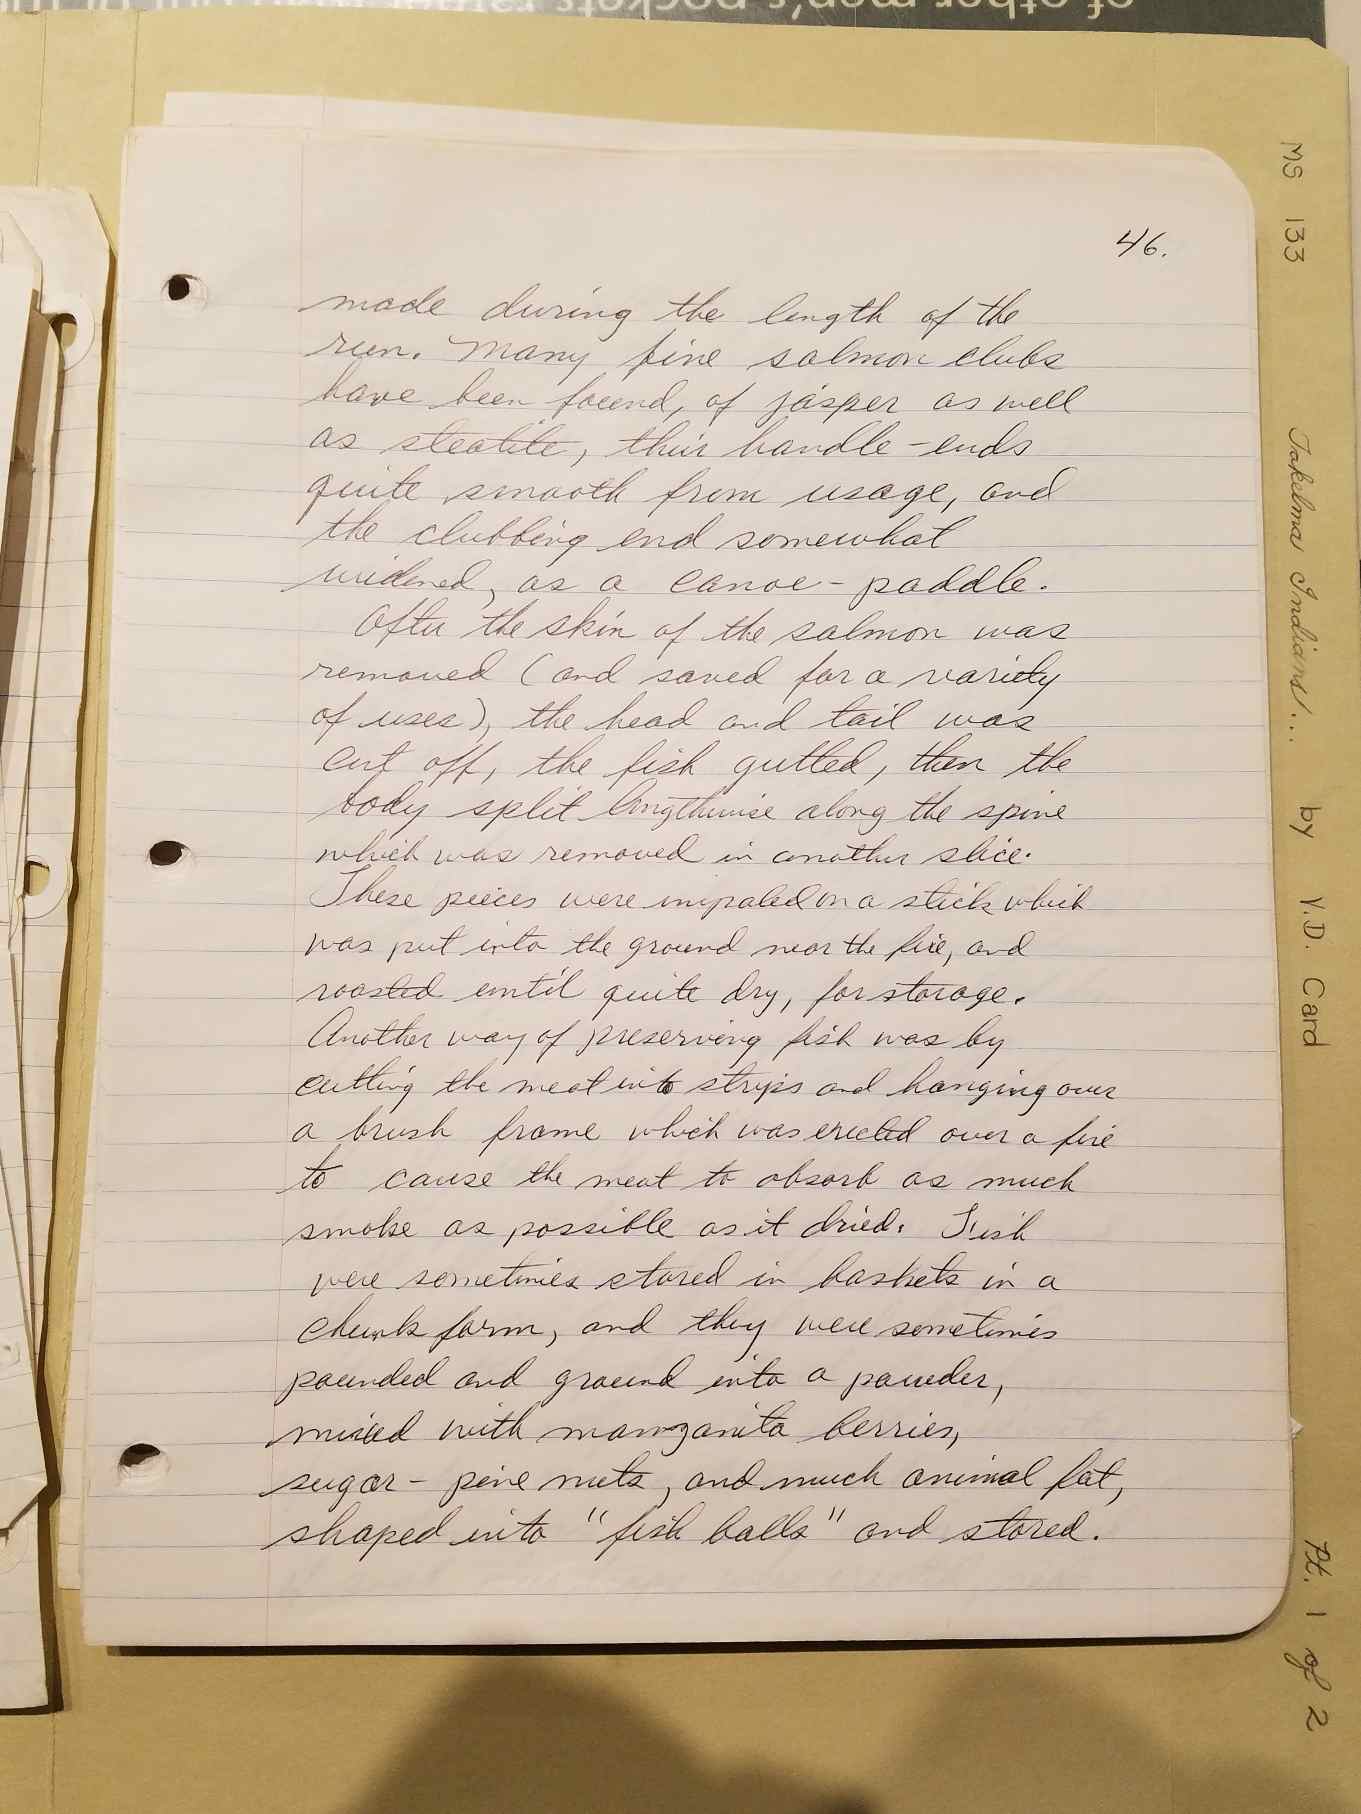 of other men's pockets rather
46.
made during the length of the
run. Many fine salmon clubs
have been found, of jasper as well
as steatite, their handle-ends
quite smooth from usage, and
the clubbing end somewhat
widened, as a canoe-paddle.
After the skin of the salmon was
removed (and saved for a variety
of uses), the head and tail was
cut off, the fish gutted, then the
body split lengthwise along the spine
which was removed in another slice.
These pieces were impaled on a stick which
was put into the ground near the fire, and
roasted until quite dry, for storage.
Another way of preserving fish was by
cutting the meat into strips and hanging over
a brush frame which was erected over a fire
to cause the meat to absorb as much
smoke as possible as it dried. Fish
were sometimes stored in baskets in a
chunk form, and they were sometimes
pounded and ground into a powder,
mixed with manzanita berries,
sugar-pine nuts, and much animal fat,
shaped into "fish balls" and stored.
MS 133 Takelma Indians... by Y.D. Card Pt. 1 of 2